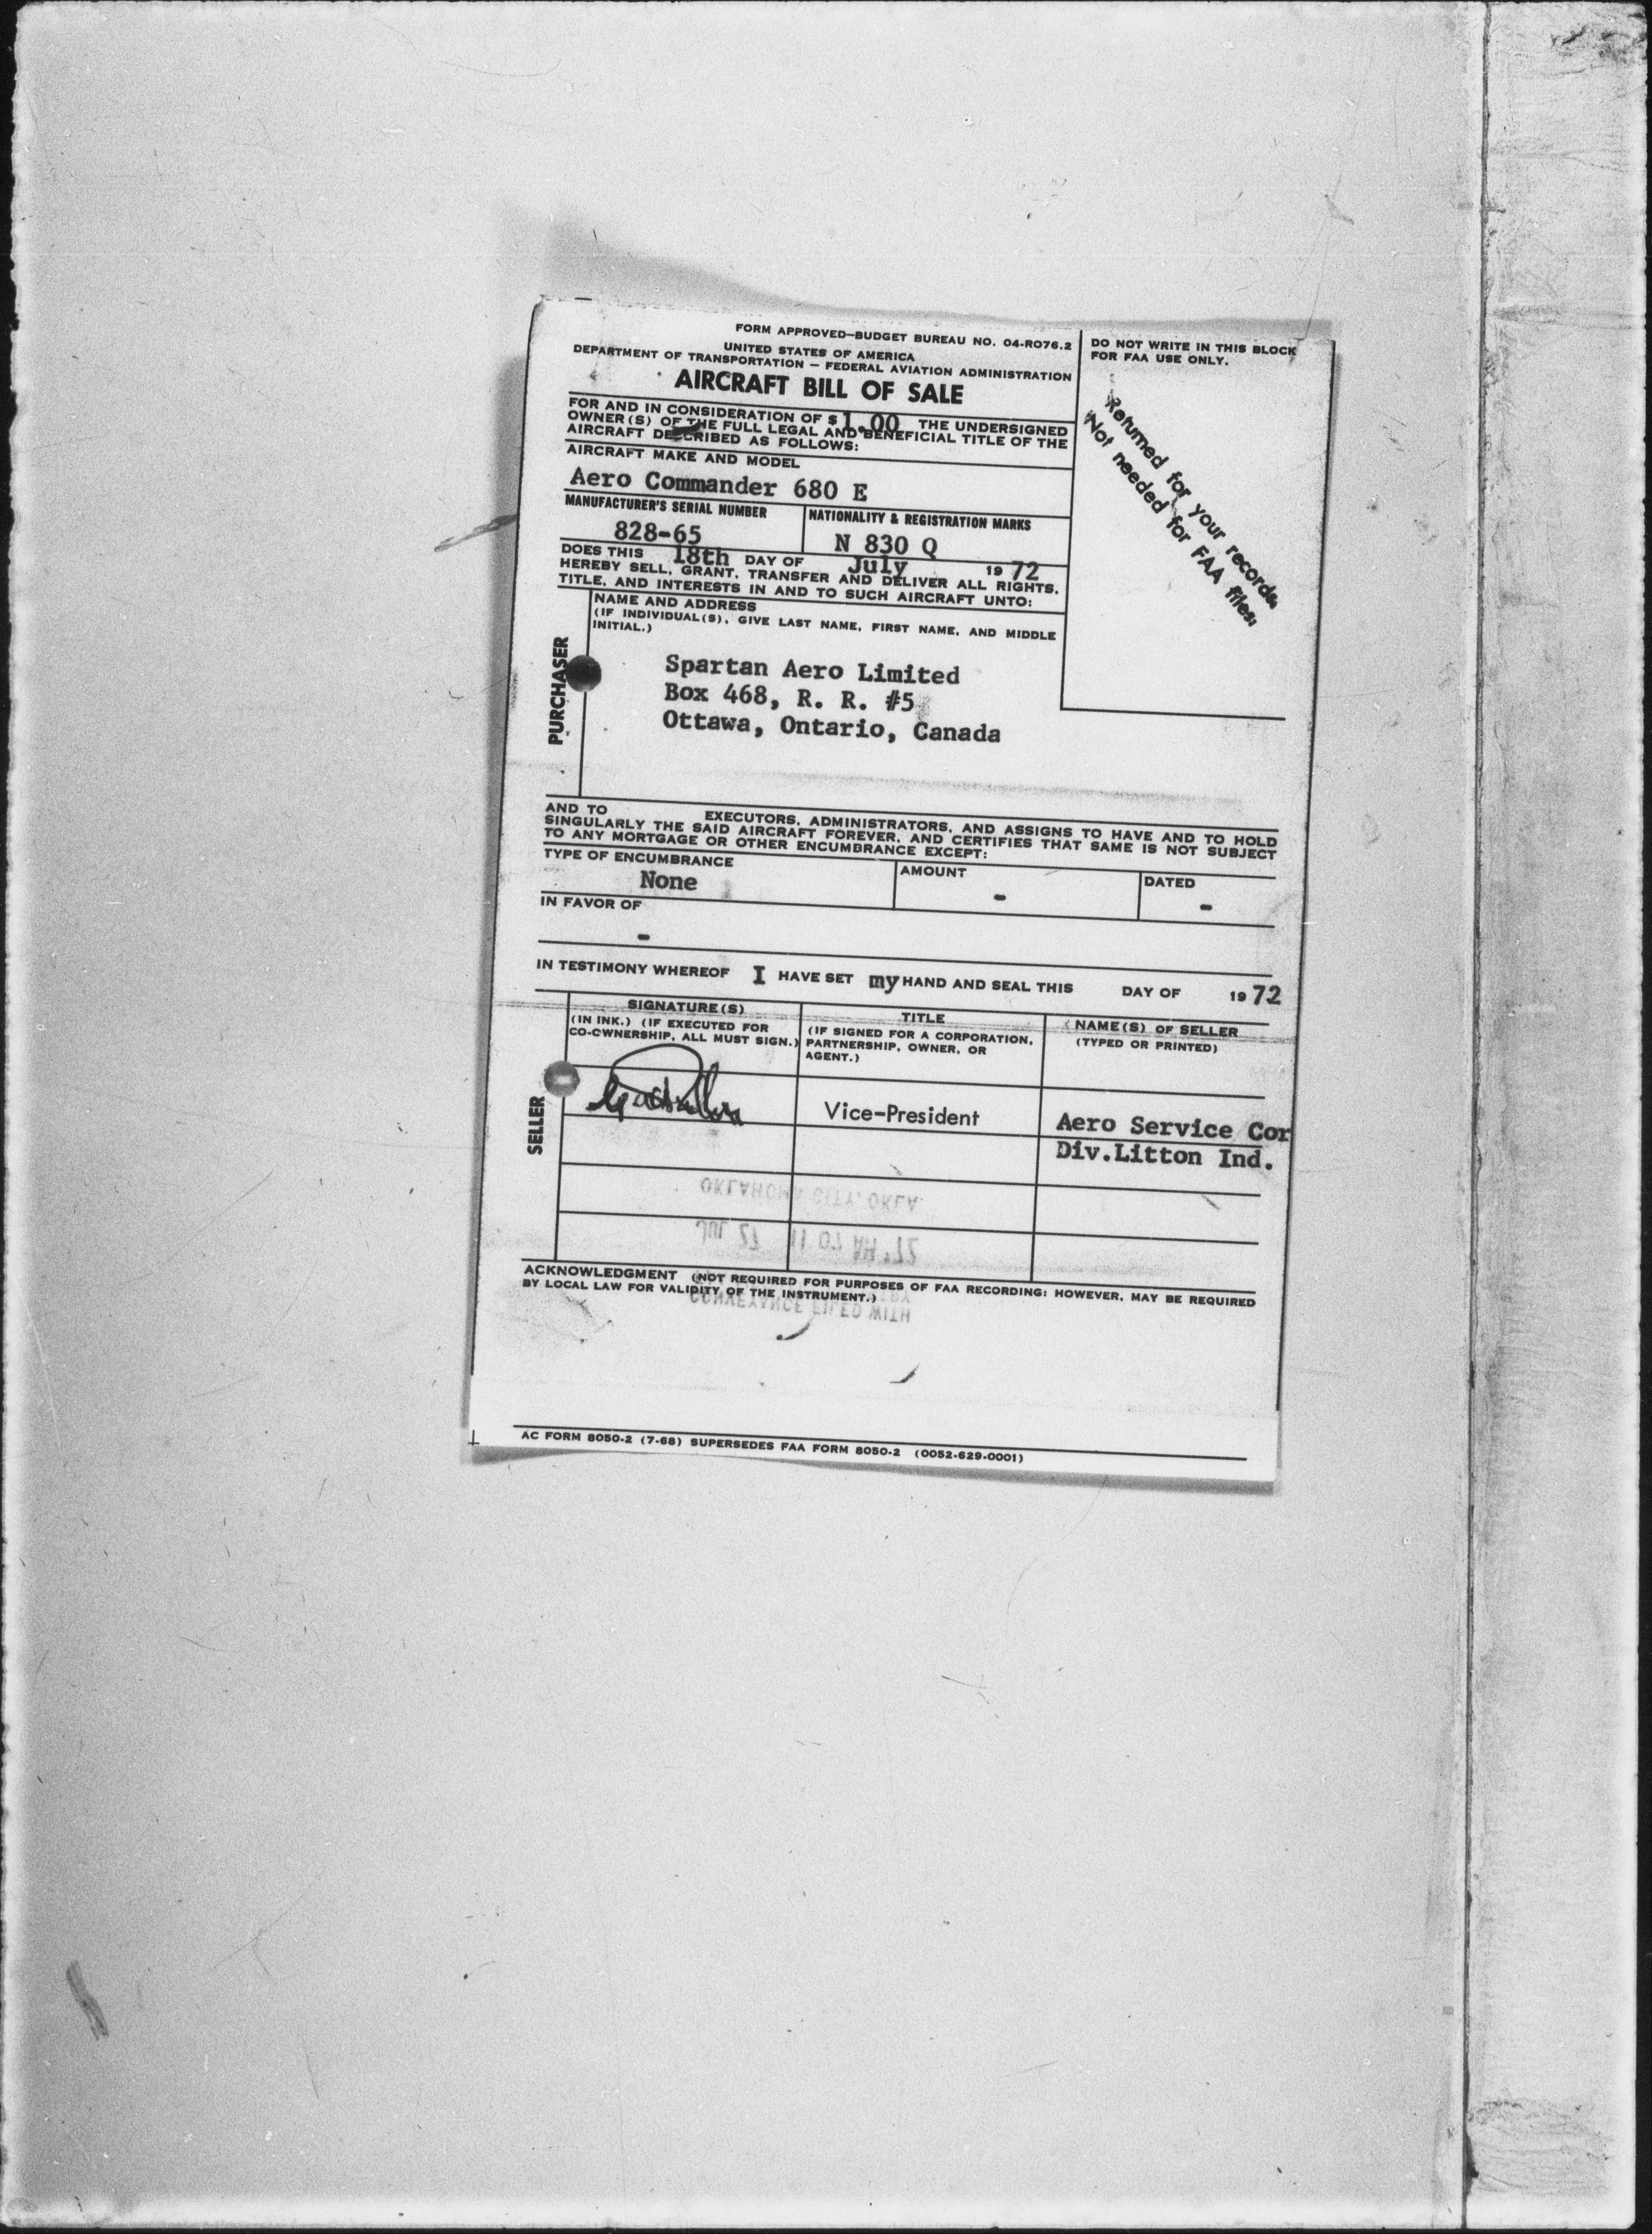 FORM APPROVED—BUDGET BUREAU NO. 04-R076.2
UNITED STATES OF AMERICA
DEPARTMENT OF TRANSPORTATION — FEDERAL AVIATION ADMINISTRATION
AIRCRAFT BILL OF SALE
DO NOT WRITE IN THIS BLOCK
FOR FAA USE ONLY.
Returned for your records.
Not needed for FAA files.
FOR AND IN CONSIDERATION OF $ 1.00 THE UNDERSIGNED
OWNER(S) OF THE FULL LEGAL AND BENEFICIAL TITLE OF THE
AIRCRAFT DESCRIBED AS FOLLOWS:
AIRCRAFT MAKE AND MODEL
Aero Commander 680 E
MANUFACTURER'S SERIAL NUMBER NATIONALITY & REGISTRATION MARKS
828-65 N 830 Q
DOES THIS 18th DAY OF July 19 72
HEREBY SELL, GRANT, TRANSFER AND DELIVER ALL RIGHTS,
TITLE, AND INTERESTS IN AND TO SUCH AIRCRAFT UNTO:
PURCHASER
NAME AND ADDRESS
(IF INDIVIDUAL(S), GIVE LAST NAME, FIRST NAME, AND MIDDLE
INITIAL.)
Spartan Aero Limited
Box 468, R. R. #5
Ottawa, Ontario, Canada
AND TO EXECUTORS, ADMINISTRATORS, AND ASSIGNS TO HAVE AND TO HOLD
SINGULARLY THE SAID AIRCRAFT FOREVER, AND CERTIFIES THAT SAME IS NOT SUBJECT
TO ANY MORTGAGE OR OTHER ENCUMBRANCE EXCEPT:
TYPE OF ENCUMBRANCE AMOUNT DATED
None - -
IN FAVOR OF
-
IN TESTIMONY WHEREOF I HAVE SET my HAND AND SEAL THIS DAY OF 19 72
SELLER
SIGNATURE(S)
(IN INK.) (IF EXECUTED FOR
CO-OWNERSHIP, ALL MUST SIGN.)
TITLE
(IF SIGNED FOR A CORPORATION,
PARTNERSHIP, OWNER, OR
AGENT.)
NAME(S) OF SELLER
(TYPED OR PRINTED)
Vice-President
Aero Service Cor
Div.Litton Ind.
OKLAHOMA CITY, OKLA.
JUL 27 11 07 AM '72
CONVEYANCE FILED WITH
ACKNOWLEDGMENT (NOT REQUIRED FOR PURPOSES OF FAA RECORDING: HOWEVER, MAY BE REQUIRED
BY LOCAL LAW FOR VALIDITY OF THE INSTRUMENT.)
AC FORM 8050-2 (7-68) SUPERSEDES FAA FORM 8050-2 (0052-629-0001)